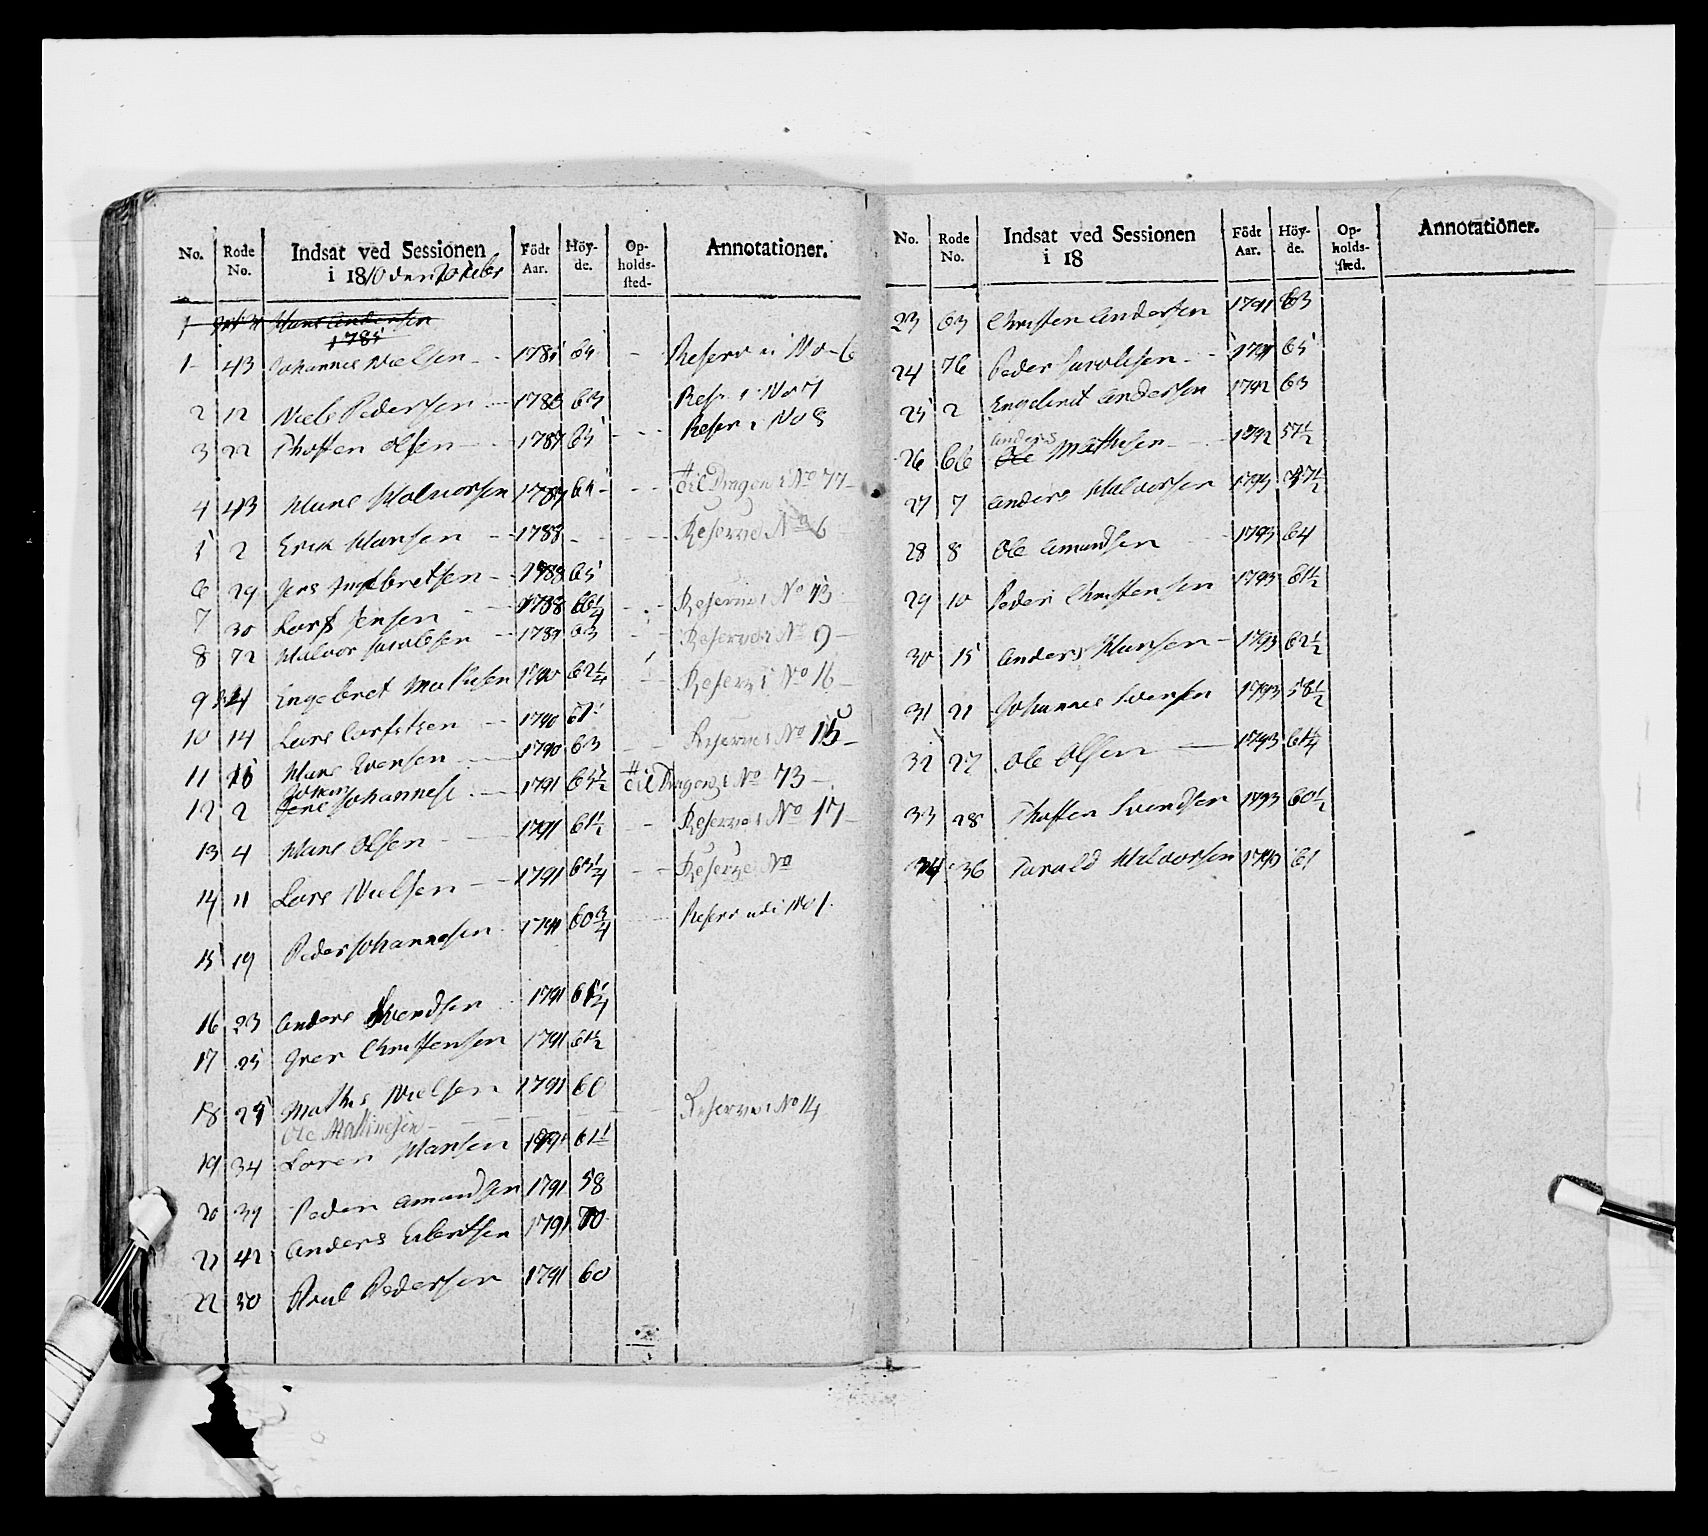 No. Rode No. Indsat ved Sessionen i 1810 den Födt Aar. Höy-de. Op-holds-sted. Annotationer.
1 Hans Andersen
1785
1 43 Johannes Nielsen 1785 65 Reserv i No 6
2 12 Niels Pedersen 1786 63 Resr i No 7
3 22 Thosten Olsen 1787 65 Reser i No 8
4 43 Hans Halvorsen 1787 64 til Dragon i No 77
5 2 Erik Hansen 1788 Reserve No 6
6 29 Jens Ingebretsen 1788 65
7 30 Lars Jensen 1788 66 1/4 Reserve i No 13
8 72 Halvor Jacobsen 1789 63 Reserve i No 9
9 34 Engebret Mathisen 1790 62 1/4 Reserv i No 16
10 14 Lars 1790 61
11 15 Hans Evensen 1790 63 Reserve i No 15
12 2 Johan Johannes 1791 65 1/2 til Dragon i No 73
13 4 Hans Olsen 1791 61 1/2 Reserve i No 17
14 11 Lars Nielsen 1791 63 1/4 Reserve No
15 19 Peder Johannesen 1791 60 3/4 Reserv No 1.
16 23 Anders Svendsen 1791 61 1/4
17 25 Iver Christensen 1791 61 1/2
18 25 Mathis Nielsen 1791 60
Ole Mathiesen Reserve i No 14
19 34 Soren Hansen 1791 61
20 39 Peder Amundsen 1791 58
21 42 Anders 1791 70
22 50 Poul Pedersen 1791 60
No. Rode No. Indsat ved Sessionen i 18 Födt Aar. Höy-de. Op-holds-sted. Annotationer.
23 63 Christen Andersen 1791 63
24 76 Peder Jacobsen 1791 65
25 2 Engebret Andersen 1792 63
Anders
26 66 Ole Mathisen 1792 57 1/2
27 7 Anders Halvorsen 1793 57 1/2
28 8 Ole Amundsen 1793 64
29 10 Peder Christensen 1793 61 1/2
30 15 Anders Hansen 1793 62 1/2
31 21 Johannes Svensen 1793 58 1/2
32 27 Ole Olsen 1793 61 1/4
33 28 Thosten Svendsen 1793 60 1/2
34 36 Tarald Halvorsen 1793 61